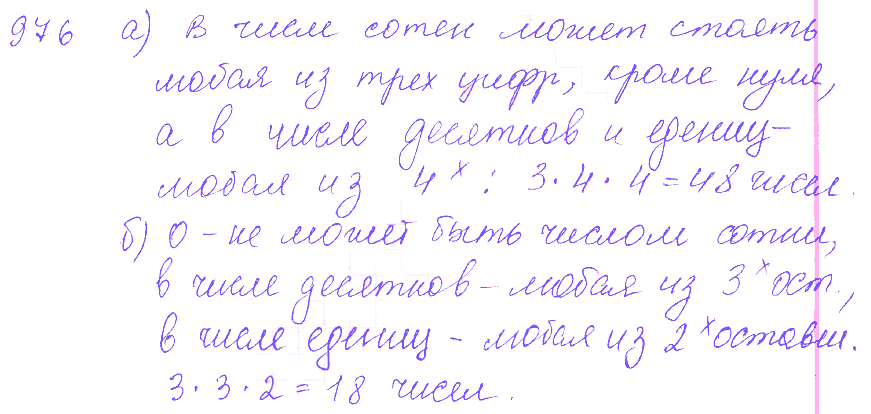 976 а) В числе сотен может стоять
любая из трех цифр, кроме нуля,
а в числе десятков и едениц-
любая из 4х: 3·4·4=48 чисел.
б) 0-не может быть числом сотни,
в числе десятков-любая из 3х ост.,
в числе едениц - любая из 2х оставш.
3·3·2=18 чисел.